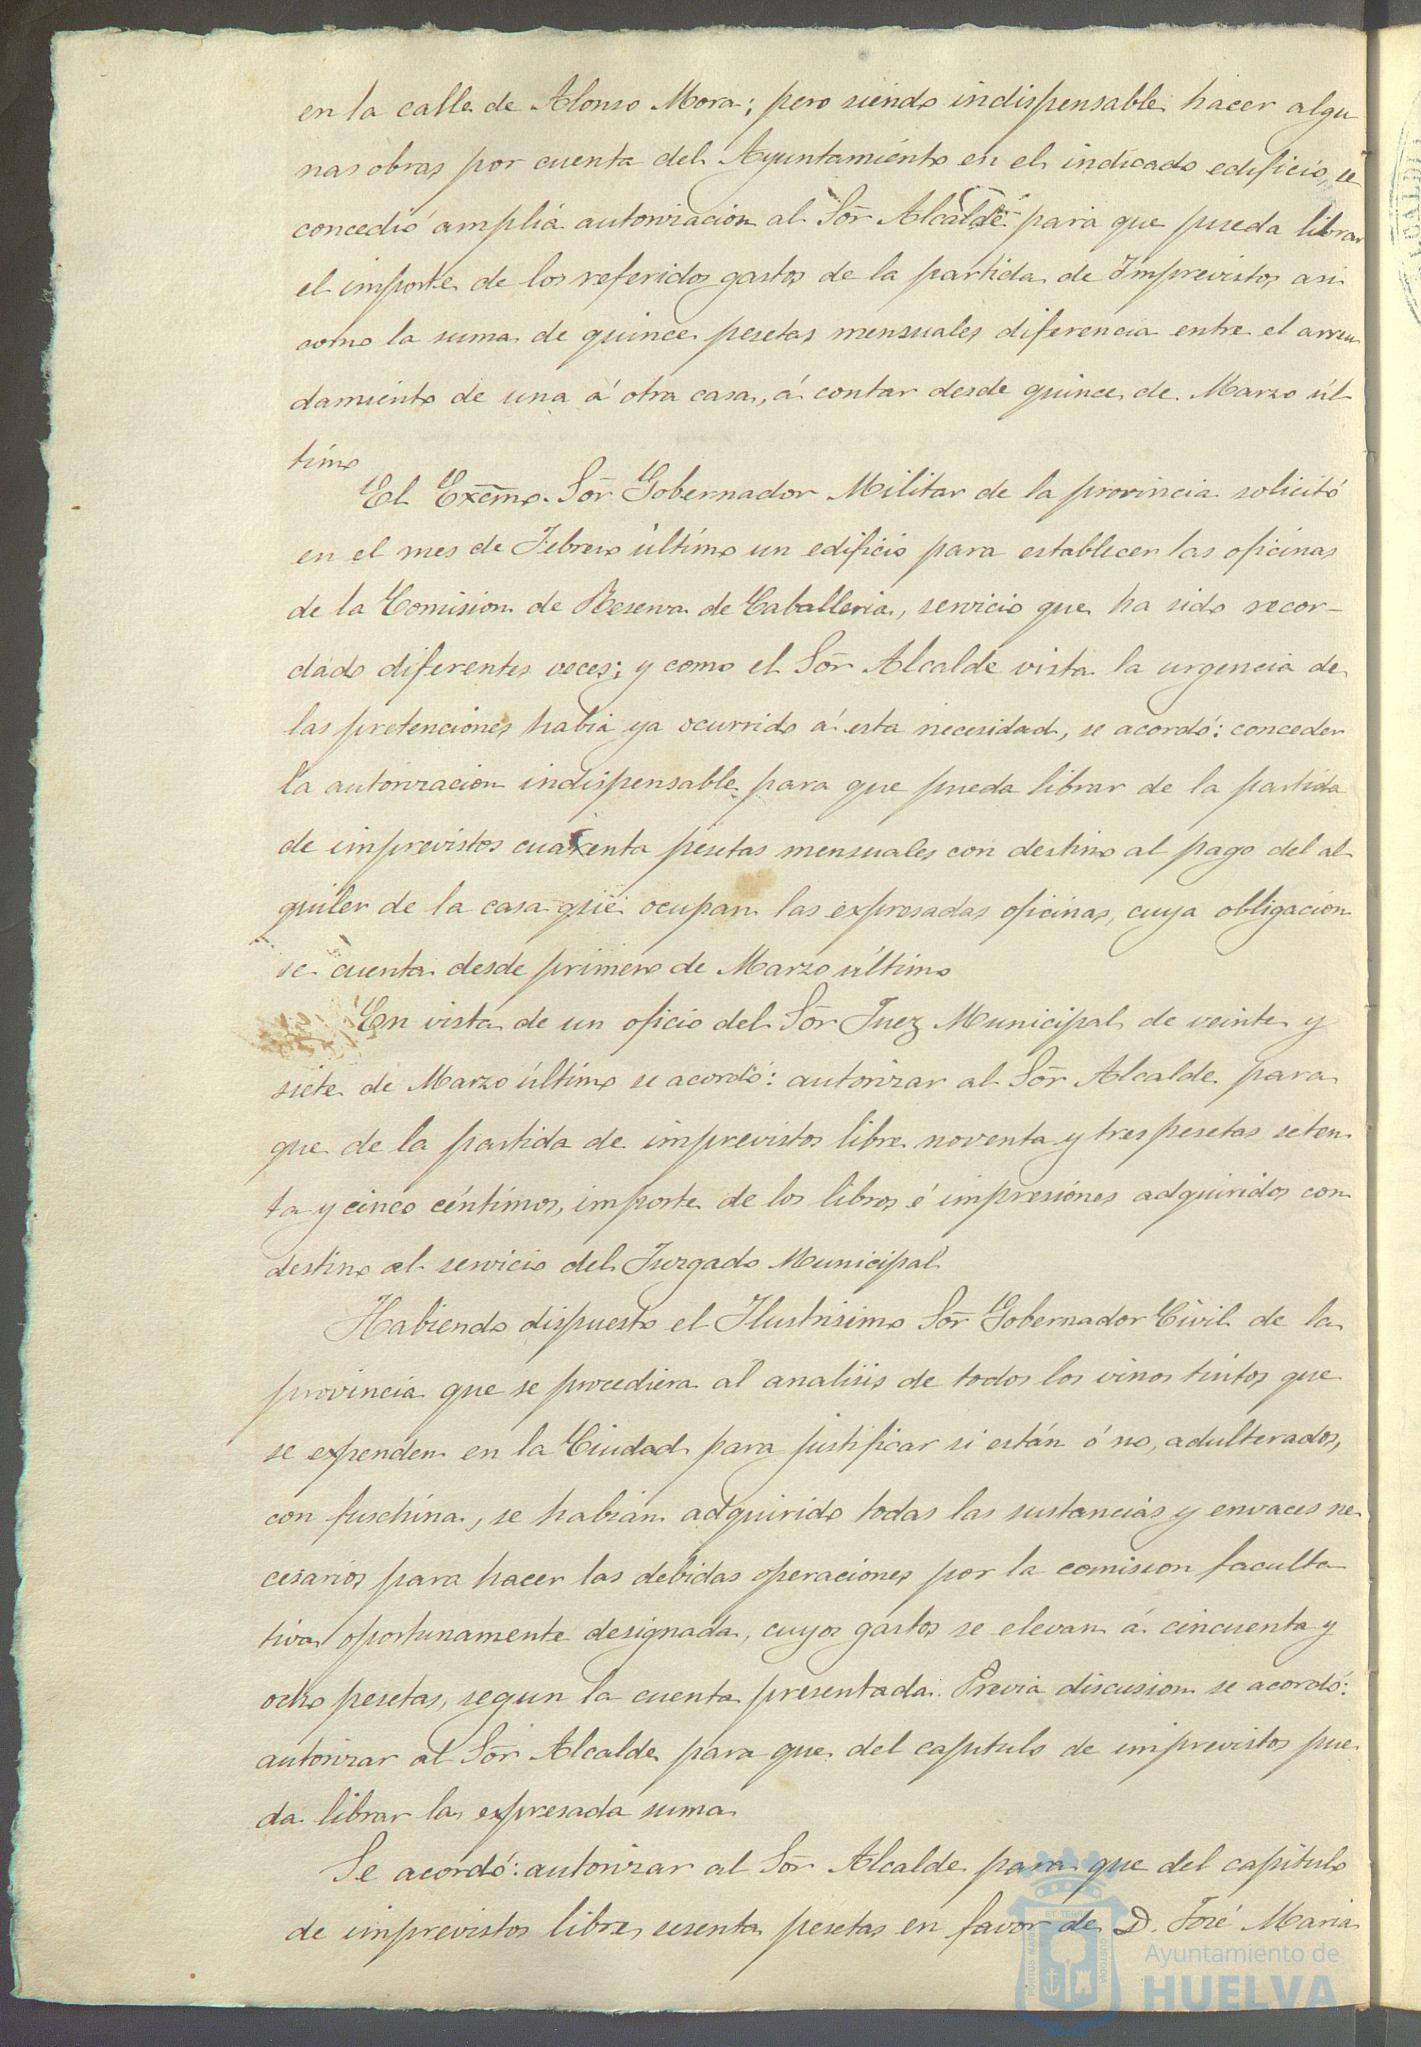 en la calle de Alonso Mora; pero siendo indispensable hacer algu
nas obras por cuenta del Ayuntamiento en el indicado edificio, se
concedió amplia autorizacion al Sōr Alcalde para que pueda librar
el importe de los referidos gastos de la partida de Imprevistos asi
como la suma de quince pesetas mensuales diferencia entre el arren
damiento de una á otra casa, á contar desde quince de Marzo úl
timo
El Excm̄o. Sōr Gobernador Militar de la provincia solicitó
en el mes de Febrero último un edificio para establecer las oficinas
de la Comision de Reserva de Caballeria, servicio que ha sido recor-
dado diferentes veces; y como el Sōr Alcalde vista la urgencia de
las pretenciones habia ya ocurrido á esta necesidad, se acordó: conceder
la autorizacion indispensable para que pueda librar de la partida
de imprevistos cuarenta pesetas mensuales con destino al pago del al
quiler de la casa que ocupan las expresadas oficinas, cuya obligacion
se cuenta desde primero de Marzo último
En vista de un oficio del Sōr Juez Municipal de veinte y
siete de Marzo último se acordó: autorizar al Sōr Alcalde para
que de la partida de imprevistos libre noventa y tres pesetas seten
ta y cinco céntimos, importe de los libros é impresiones adquiridos con
destino al servicio del Juzgado Municipal
Habiendo dispuesto el Ilustrisimo Sōr Gobernador Civil de la
provincia que se procediera al analisis de todos los vinos tintos que
se expenden en la Ciudad para justificar si están ó no, adulterados,
con fuschina, se habian adquirido todas las sustancias y envaces ne
cesarios para hacer las debidas operaciones por la comision faculta
tiva oportunamente designada, cuyos gastos se elevan á cincuenta y
ocho pesetas, segun la cuenta presentada. Previa discusion se acordó:
autorizar al Sōr Alcalde para que del capitulo de imprevistos pue
da librar la expresada suma
Se acordó: autorizar al Sōr Alcalde para que del capitulo
de imprevistos libre sesenta pesetas en favor de D. José Maria
Ayuntamiento de
HUELVA